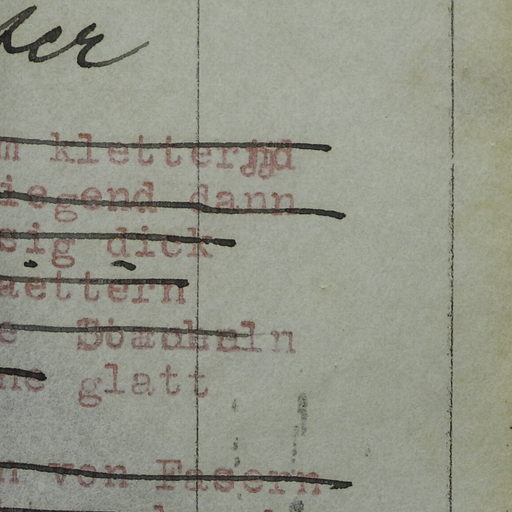 der
m kletternd
iegend dann
sig dick
aettern
e Stacheln
ne glatt
n von Fasern